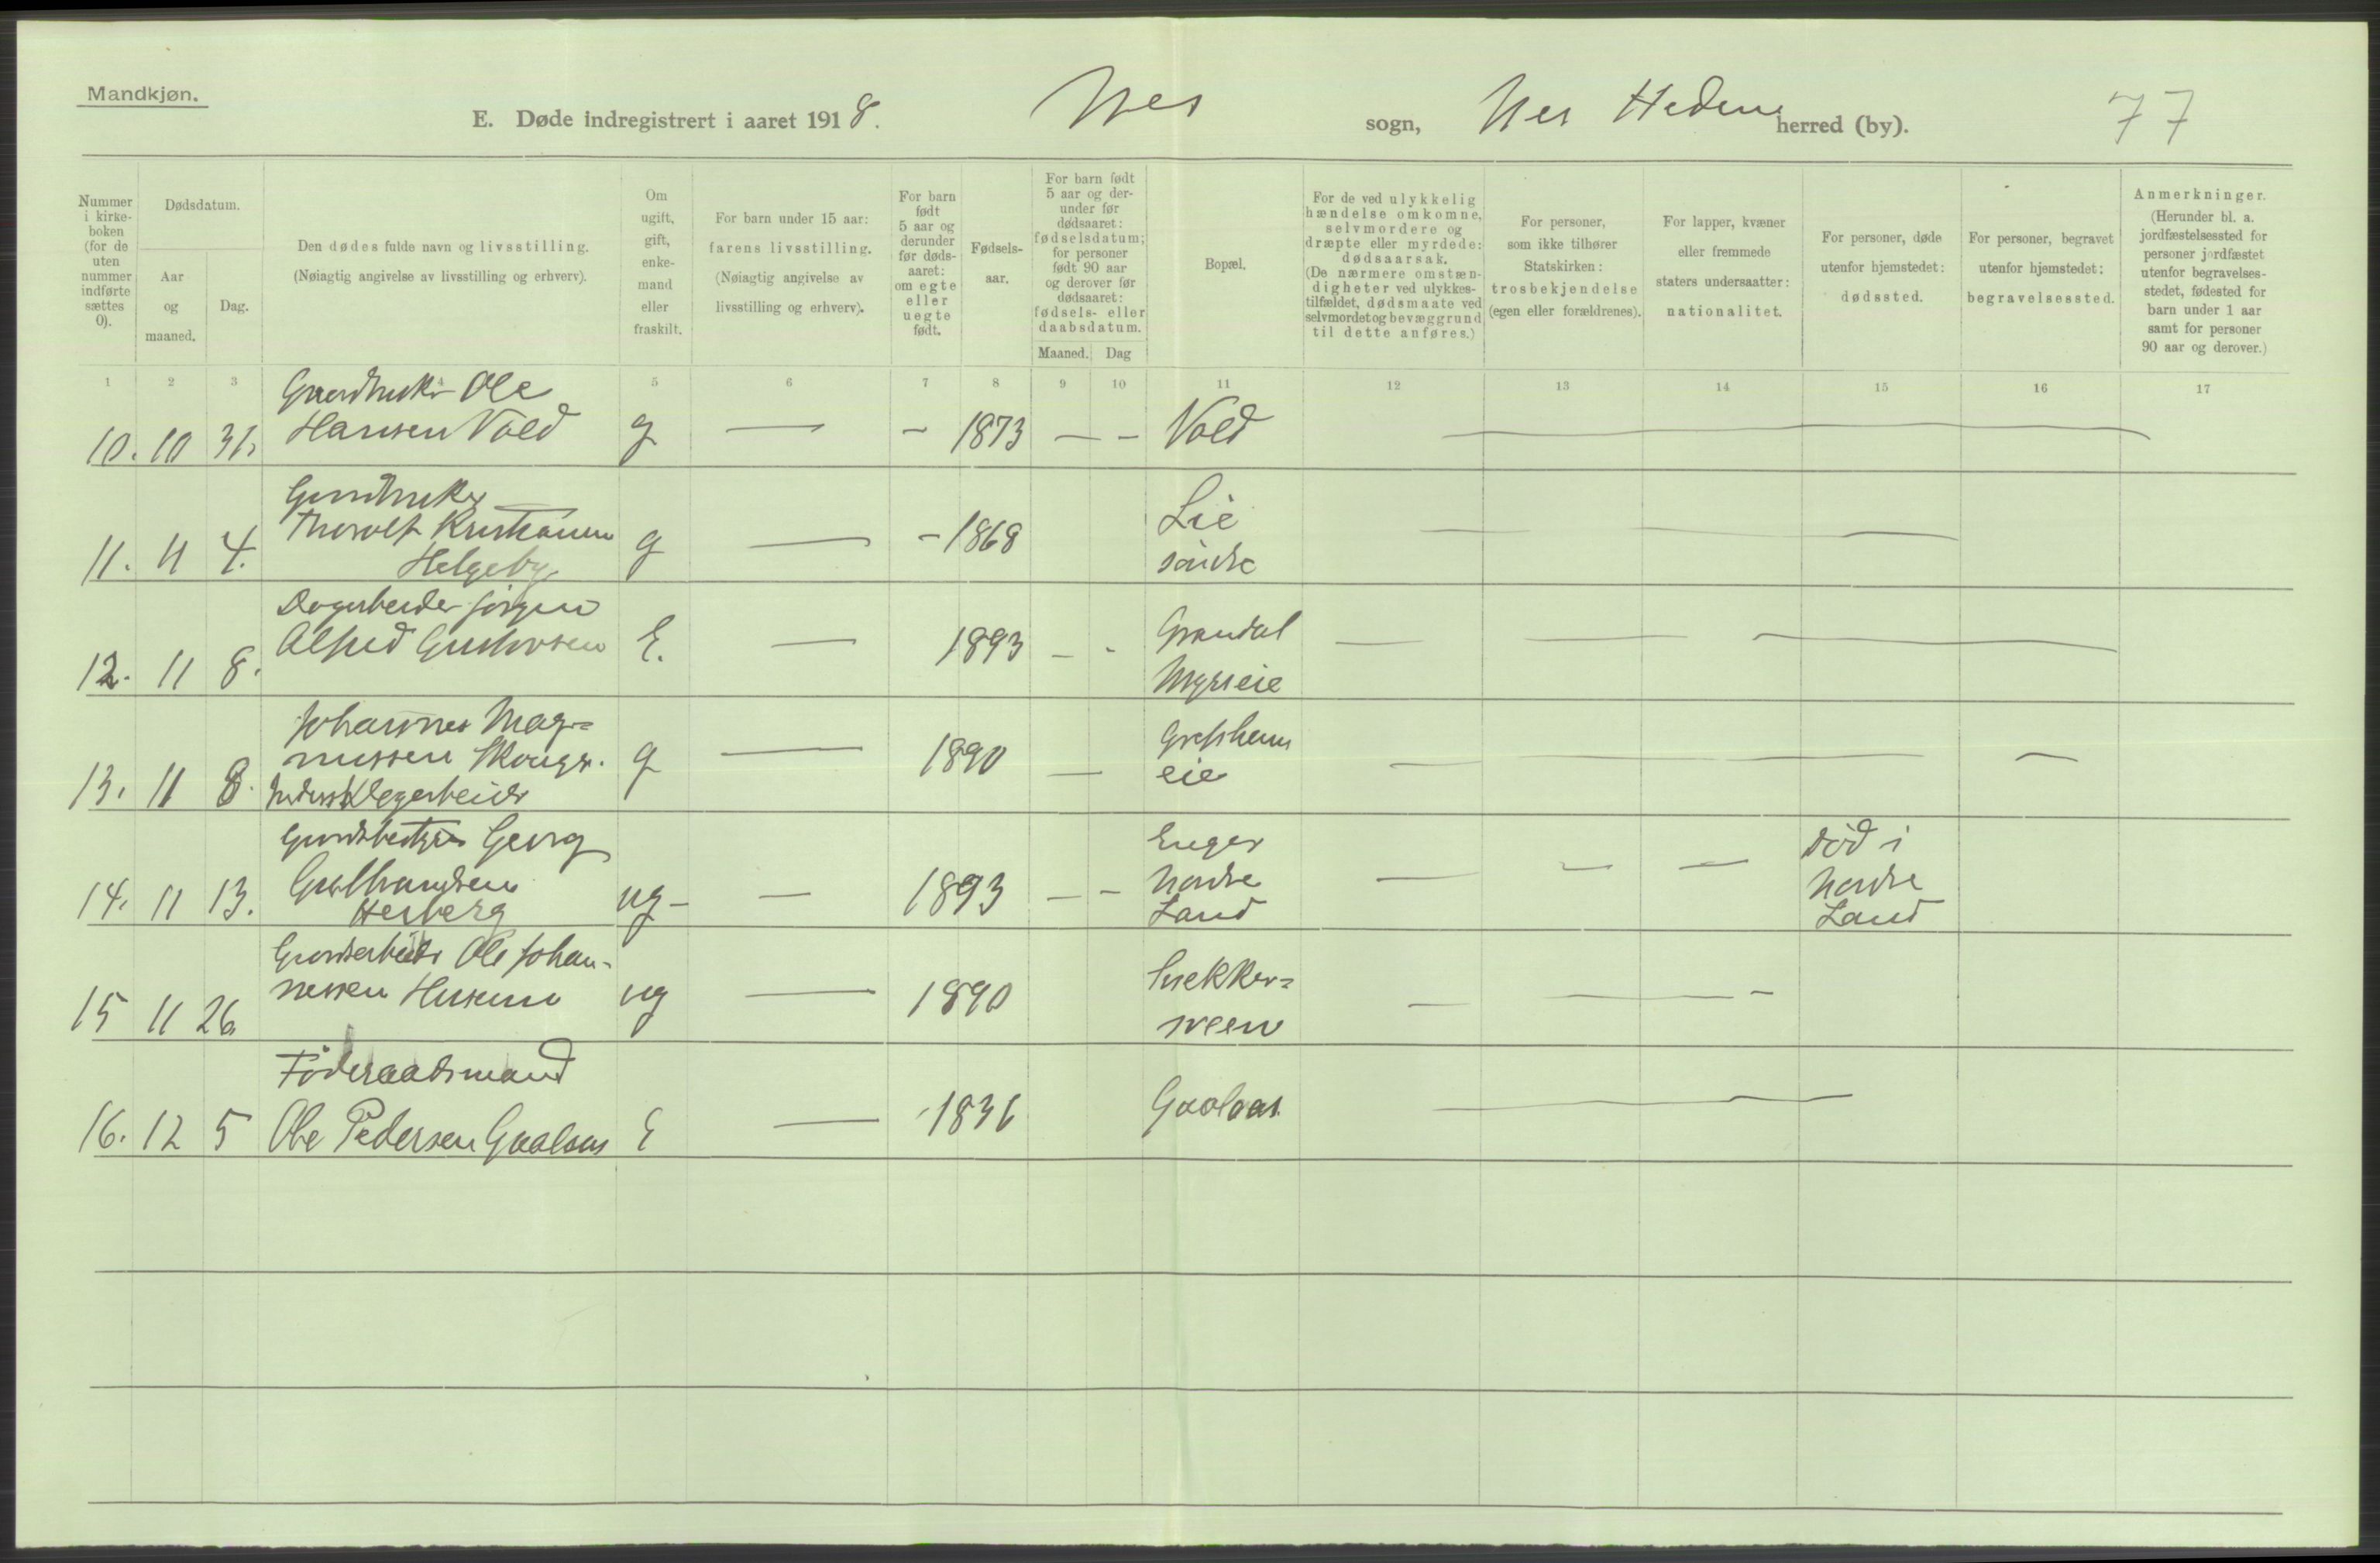 Mandkjøn.
E. Døde indregistrert i aaret 1918. Nes sogn, Nes Hedem herred (by). 77
Nummer i kirke-boken (for de uten nummer indførte sættes 0).
Dødsdatum.
Aar og maaned.
Dag.
Den dødes fulde navn og livsstilling.
(Nøiagtig angivelse av livsstilling og erhverv).
Om ugift, gift, enke-mand eller fraskilt.
For barn under 15 aar:
farens livsstilling.
(Nøiagtig angivelse av
livsstilling og erhverv).
For barn født 5 aar og derunder før døds-aaret: om egte eller uegte født.
Fødsels-aar.
For barn født 5 aar og der-under før dødsaaret: fødselsdatum; for personer født 90 aar og derover før dødsaaret: fødsels- eller daabsdatum.
Maaned. Dag
Bopæl.
For de ved ulykkelig hændelse omkomne, selvmordere og dræpte eller myrdede: dødsaarsak. (De nærmere omstæn-digheter ved ulykkes-tilfældet, dødsmaate ved selvmordet og bevæggrund til dette anføres.)
For personer, som ikke tilhører Statskirken: trosbekjendelse (egen eller forældrenes).
For lapper, kvæner eller fremmede staters undersaatter: nationalitet.
For personer, døde utenfor hjemstedet: dødssted.
For personer, begravet utenfor hjemstedet: begravelsessted.
Anmerkninger.
(Herunder bl. a. jordfæstelsessted for personer jordfæstet utenfor begravelses-stedet, fødested for barn under 1 aar samt for personer 90 aar og derover.)
1 2 3 4 5 6 7 8 9 10 11 12 13 14 15 16 17
Gaardbruker Ole
10. 10 31. Hansen Vold g — - 1873 — - Vold —
Gaardbruker Lie
Thorolf Kristiansen
11. 11 4. Helgeby g — - 1868 søndre — — —
Dagarbeider Jørgen Grandal
12. 11 8. Alfred Gustavsen E. — 1893 - - Myrseie — — —
Johannes Mag= Grefsheim
13. 11 8. nussen g — 1890 — eie — — — —
Dagarbeider
Gaardsbestyrer Georg Enger død i
14. 11 13. Gulbrandsen ug - — 1893 — - Nordre — — — Nordre
Herberg Land Land
Gaardsarbeider Ole Johan-
15 11 26 nessen Husum ug — 1890 sveen — — -
Føderaadsmand
16. 12 5 Ole Pedersen Gaalaas E — - 1836 Gaalaas —